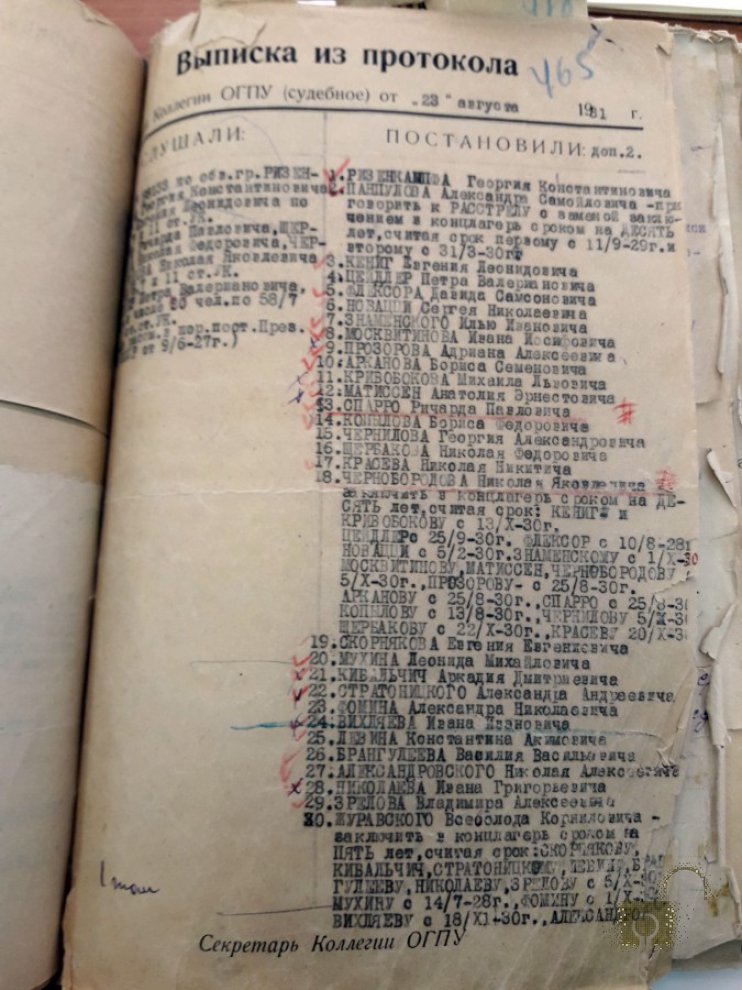 465
Выписка из протокола
Коллегии ОГПУ (судебное) от „23" августа 1931 г.
СЛУШАЛИ:
по обв.гр.РИЗЕН-
Георгия Константиновича
Леонидовича по
11 ст.УК.
Ричарда Павловича, ЩЕР-
Николая Федоровича, ЧЕР-
Николая Яковлевича
и 11 ст.УК.
Петра Валериановича,
числе 20 чел.по 58/7
ст.УК.
в пор.пост.През.
от 9/6-27г.)
ПОСТАНОВИЛИ: доп.2.
1.РИЗЕНКАМПФА Георгия Константиновича
2.ПАНПУЛОВА Александра Самойловича -при
говорить к РАССТРЕЛУ с заменой заклю-
чением в концлагерь сроком на ДЕСЯТЬ
лет,считая срок первому с 11/9-29г.и
второму с 31/3-30г.
3.КЕНИГ Евгения Леонидовича
4.ЦЕЙДЛЕР Петра Валериановича
5.ФЛЕКСОРА Давида Самсоновича
6.НОВАЦЦИ Сергея Николаевича
7.ЗНАМЕНСКОГО Илью Ивановича
8.МОСКВИТИНОВА Ивана Иосифовича
9.ПРОЗОРОВА Адриана Алексеевича
10.АРКАНОВА Бориса Семеновича
11.КРИВОБОКОВА Михаила Львовича
12.МАТИССЕН Анатолия Эрнестовича
13.СПАРРО Ричарда Павловича
14.КОПЫЛОВА Бориса Федоровича
15.ЧЕРНИЛОВА Георгия Александровича
16.ЩЕРБАКОВА Николая Федоровича
17.КРАСЕВА Николая Никитича
18.ЧЕРНОБОРОДОВА Николая Яковлевича
заключить в концлагерь сроком на ДЕ-
СЯТЬ лет,считая срок: КЕНИГ и
КРИВОБОКОВУ с 13/Х-30г.
ЦЕЙДЛЕР с 25/9-30г. ФЛЕКСОР с 10/8-28г
НОВАЦЦИ с 5/2-30г.ЗНАМЕНСКОМУ с 1/Х-30
МОСКВИТИНОВУ,МАТИССЕН,ЧЕРНОБОРОДОВУ
5/Х-30г.,ПРОЗОРОВУ- с 25/8-30г.
АРКАНОВУ с 25/8-30г.,СПАРРО с 25/8-30
КОПЫЛОВУ с 13/8-30г.,ЧЕРНИЛОВУ 5/Х-3
ЩЕРБАКОВУ с 22/Х-30г.,КРАСЕВУ 20/Х-3
19.СКОРНЯКОВА Евгения Евгениевича
20.МУХИНА Леонида Михайловича
21.КИБАЛЬЧИЧ Аркадия Дмитриевича
22.СТРАТОНИЦКОГО Александра Андреевича
23.ФОМИНА Александра Николаевича
24.ВИХЛЯЕВА Ивана Ивановича
25.ЛЕВИНА Константина Акимовича
26.БРАНГУЛЕЕВА Василия Васильевича
27.АЛЕКСАНДРОВСКОГО Николая Алексеевича
28.НИКОЛАЕВА Ивана Григорьевича
29.ЗРЕЛОВА Владимира Алексеевича
30.ЖУРАВСКОГО Всеволода Корниловича -
заключить в концлагерь сроком на
ПЯТЬ лет,считая срок:СКОРНЯКОВУ,
КИБАЛЬЧИЧ,СТРАТОНИЦКОМУ,
ГУЛЕЕВУ,НИКОЛАЕВУ,ЗРЕЛОВУ с 5/Х-30
МУХИНУ с 14/7-28г.,ФОМИНУ с 1/Х
ВИХЛЯЕВУ с 18/Х1-30г.,АЛЕКСАНДРО
1 том
Секретарь Коллегии ОГПУ